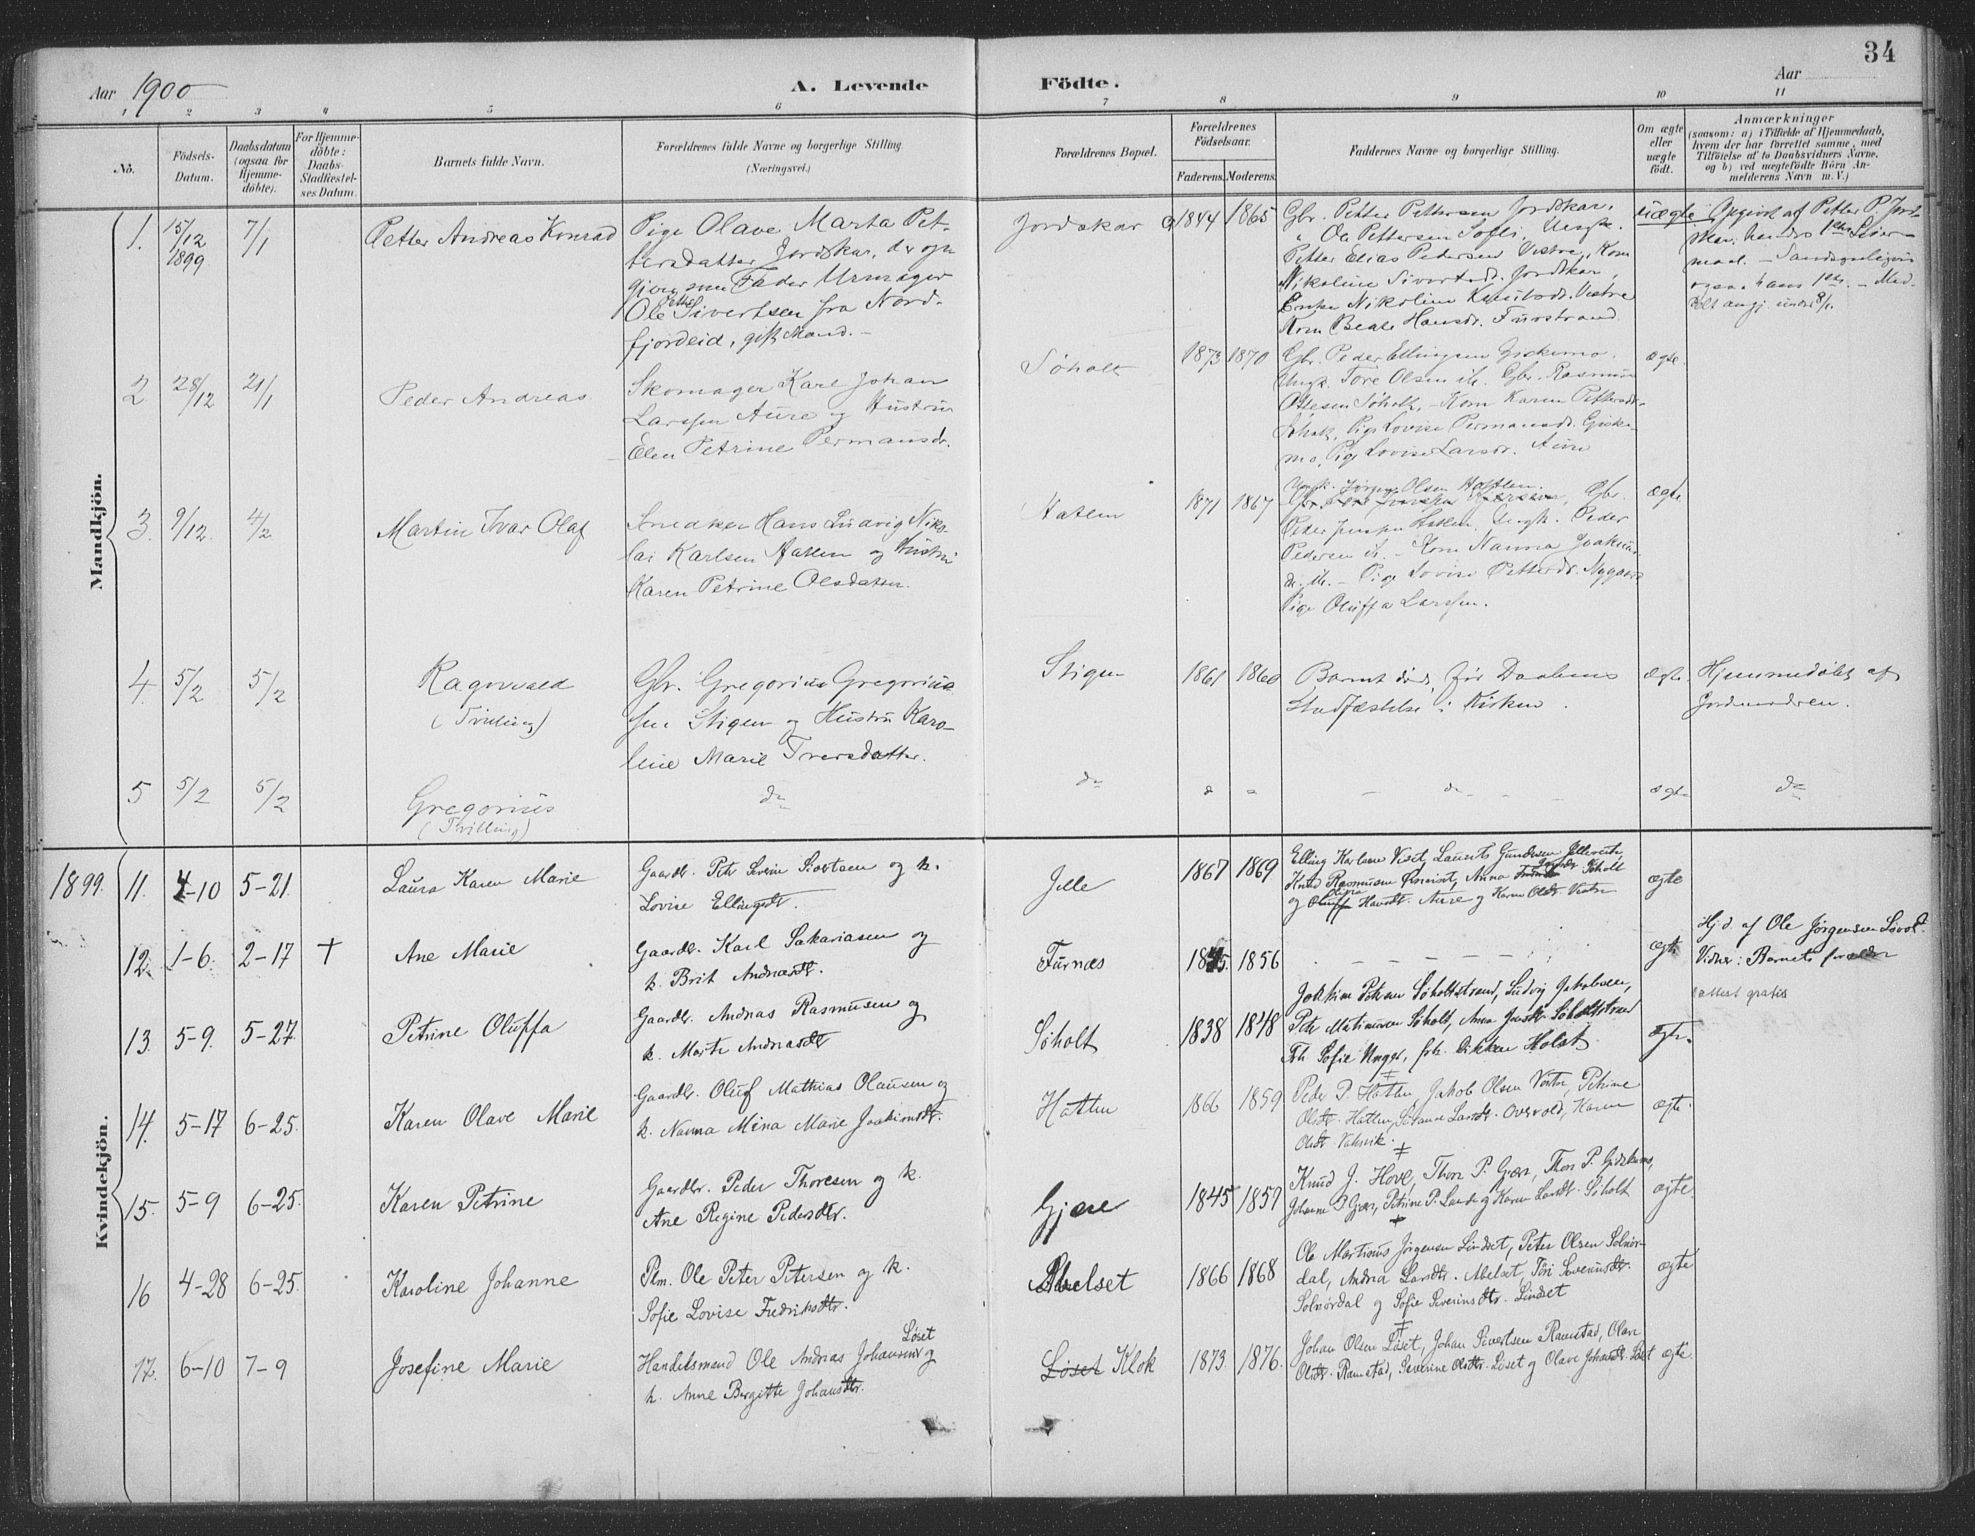 34
Aar 1900
A. Levende Födte.
Aar
1 2 3 4 5 6 7 8 9 10 11
No.
Födsels-
Datum.
Daabsdatum
(ogsaa for
Hjemme-
döbte).
For Hjemme-
döbte:
Daabs-
Stadfæstel-
ses Datum.
Barnets fulde Navn.
Forældrenes fulde Navne og borgerlige Stilling.
(Næringsvei.)
Forældrenes Bopæl.
Forældrenes
Födselsaar.
Faderens.
Moderens.
Faddernes Navne og borgerlige Stilling.
Om ægte
eller
uægte
födt.
Anmærkninger
(saasom: a) i Tilfælde af Hjemmedaab,
hvem der har forrettet samme, med
Tilföielse af to Daabsvidners Navne,
og b) ved uægtefödte Börn An-
melderens Navn m. V.)
Mandkjön.
1. 15/12 1899 7/1
Petter Andreas Konrad
Pige Olave Marta Pet-
tersdatter Jordskar, der op-
giver som Fader Urmager
Ole Petter Sivertsen fra Nord-
fjordeid, gift Mand. -
Jordskar
1844 1865
Gbr. Petter Pettersen Jordskar,
" Ole Pettersen Sofli, Ungk.
Petter Elias Pedersen Vestre, Kone
Nikoline Sivertsd. Jordskar,
Enke Nikoline Knutsdr. Vestre
Kone Beate Hansdr. Furstrand.
uægte
Opgivet af Petter P. Jord-
skar, hendes 1ste Leier-
maal. - Sandsynligvis
ogsaa hans 1ste. - Med-
delt angj. under 8/1.
2 28/12 21/1
Peder Andreas
Skomager Karl Johan
Larssen Aure og Hustru
Elen Petrine Permansdr.
Søholt
1873 1870
Gbr. Peder Ellingsen Giskemo,
Ungk. Tore Olsen ib. Gbr. Rasmus
Ottesen Søholt, - Kone Karen Pettersdr.
Søholt, Pige Lovise Permansdr. Giske-
mo, Pige Lovise Larsdr. Aure
ægte.
3. 9/12. 4/2
Martin Ivar Olaf
Snedker Hans Ludvig Niko-
lai Karlsen Hatlen og Hustru
Karen Petrine Olsdatter.
Hatlen
1871 1867
Ungk. Jørgen Olsen Hatlen.
Gbr.
Peder Jensen Hatlen, Ungk. Peder
Pedersen ib. - Kone Nanna Joakims-
dr. ib. - Pige Lovise Pettersdr. Nygaard
Pige Oluffa Larssen.
ægte
4. 5/2 5/2
Ragnvald
(Tvilling)
Gbr. Gregorius Gregorius-
sen Stigen og Hustru Karo-
line Marie Iversdatter.
Stigen
1861 1860
Barnet døde, før Daabens
Stadfæstelse i Kirken.
ægte
Hjemmedøbt af
Jordmoderen.
5 5/2 5/2
Gregorius
(Tvilling)
do
do
" "
- do - - -
ægte
do
1899.
Kvindekjön.
11. 4-10 5-21.
Laura Karen Marie
Gaardbr. Petr Severin Sivertsen og h.
Lovise Ellingsdtr.
Jelle
1867 1869
Elling Karlsen Viset, Laurits Gundersen Jelleviken
Knud Rasmussen Ørneiset, Anna Søholt
og Oluffa Olivia Hansdt. Aure og Karen Olsdt. Vestre
ægte
12. 1-6. 2-17 +
Ane Marie
Gaardbr. Karl Sakariasen og
h. Brit Andreasdt.
Furnæs
1845. 1856
- - - - - -
ægte
Hjd. af Ole Jørgensen Løvol.
Vidner: Barnets forældre
attest gratis
13. 5-9. 5-27.
Petrine Oluffa
Gaardbr. Andreas Rasmusen og
h. Marte Andreasdtr
Søholt
1838 1848
Joakim Petersen Søholtstrand, Ludvig Jakobsen,
Petr Matiassen Søholt, Anna Jensdtr Søholtstrand
Frk. Sofie Unger, frk. Dikken Holst.
ægte.
14. 5-17 6-25.
Karen Olave Marie
Gaardbr. Oluf Mathias Olausen og
h. Nanna Mina Marie Joakimsdtr.
Hatlen
1866 1859
Peder P. Hatlen, Jakob Olsen Vestre, Petrine
Olsdt. Hatlen, Susanne Larsdt. Overvold, Karen
Olsdt Vaksvik.
ægte.
15. 5-9 6-25.
Karen Petrine
Gaardbr. Peder Thoresen og h.
Ane Regine Pedersdtr.
Gjære
1845 1859
Knud J. Hove, Thor P. Gjære, Thor P. Gidskemo,
Johanne P Gjære, Petrine P. Lande og Karen Larsdt. Søholt
ægte.
16 4-28 6-25.
Karoline Johanne
Plm. Ole Peter Petersen og h.
Sofie Lovise Fredriksdtr.
Abelset
1866 1868
Ole Martinus Jørgensen Lindset, Peter Olsen Solnør-
dal, Andrea Larsdtr. Abelset, Tóri Severinsdtr.
Solnørdal og Sofie Severinsdtr. Lindset
ægte
17. 6-10 7-9
Josefine Marie
Handelsmand Ole Andreas Johansen Løset og
h. Anne Bergitte Johansdtr.
Løset Klok
1873. 1876.
Johan Olsen Løset, Johan Sivertsen Ramstad, Olave
Olsdt. Ramstad, Severine Olsdtr. Løset og Olave Johansdt. Løset
ægte.